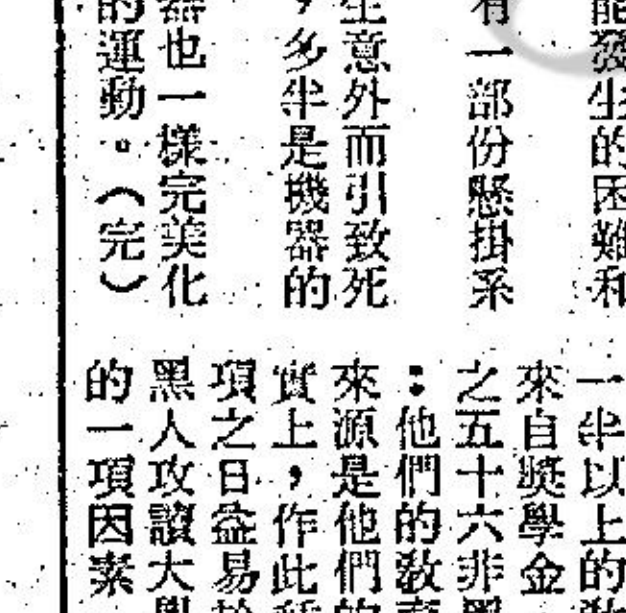 能發生的困難和
有一部份懸掛系
生意外而引致死
，多半是機器的
器也一樣完美化
的運動。（完）
一半以上的教
來自獎學金
之五十六非黑
：他們的教育
來源是他們的
實上，作此種
項之日益易於
黑人攻讀大學
的一項因素